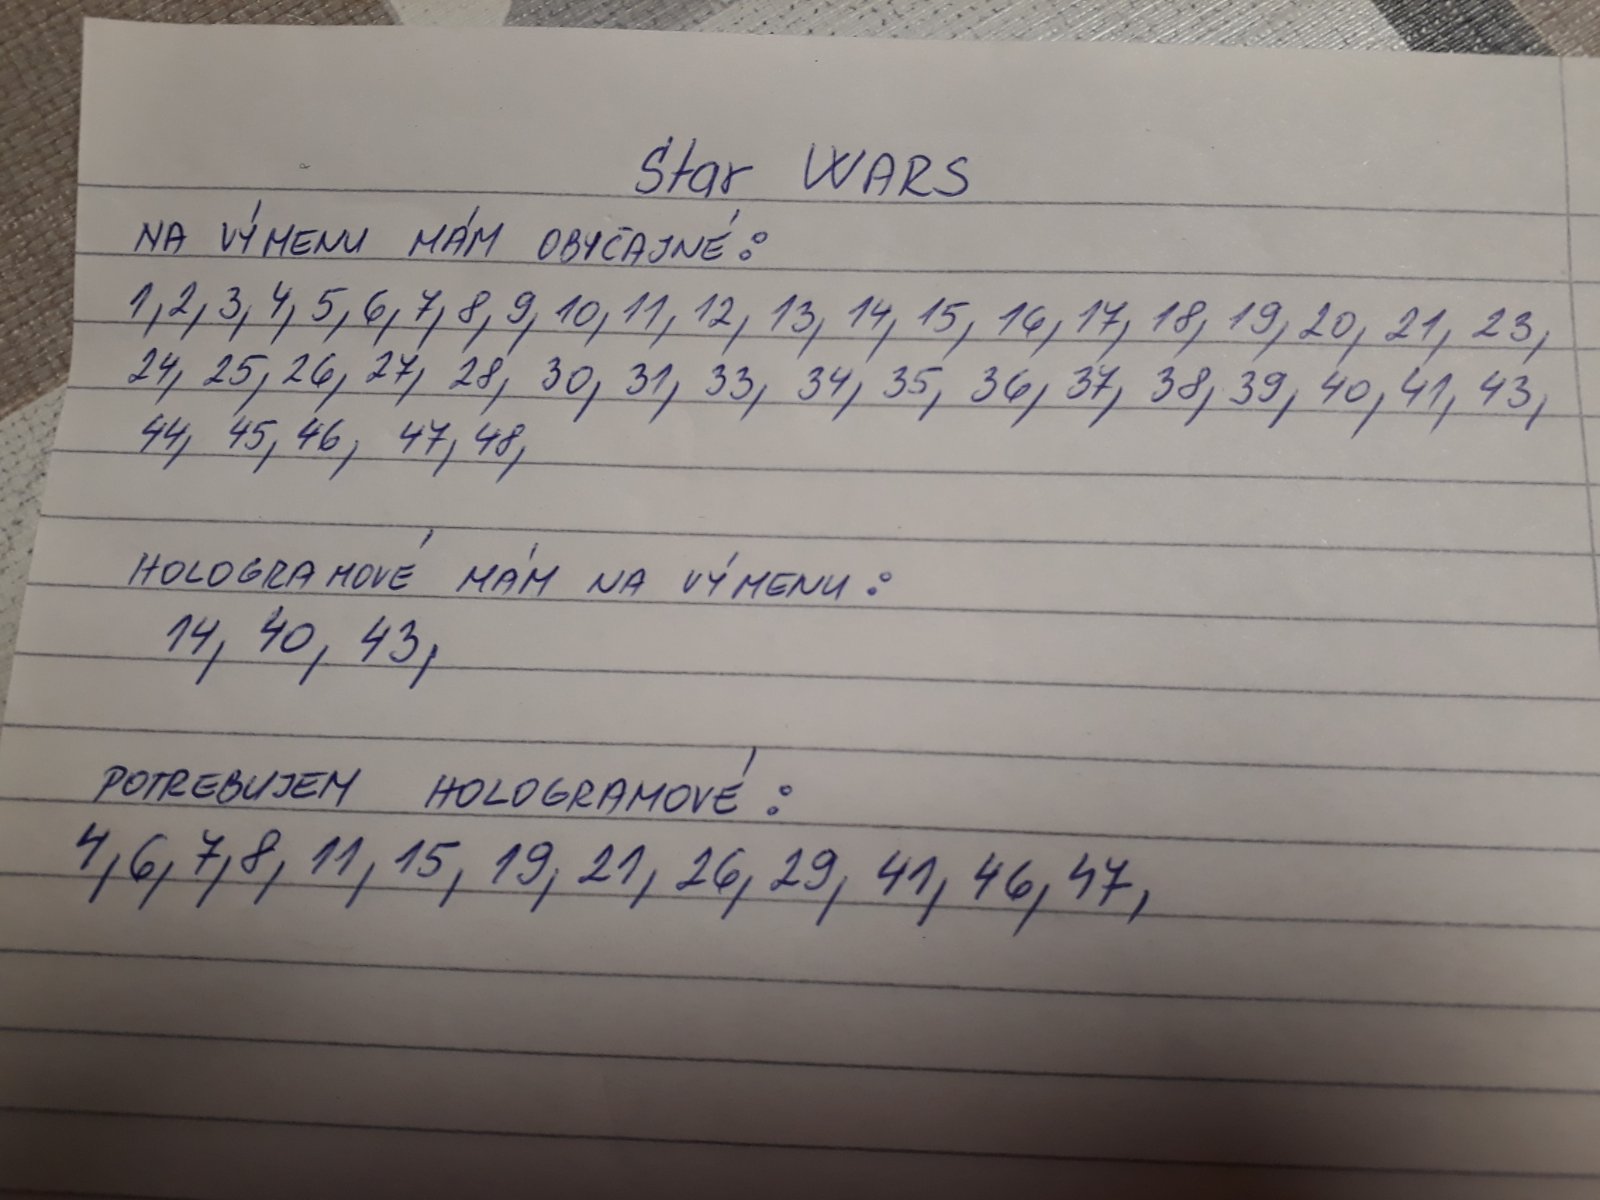 Star WARS
NA VÝMENU MÁM OBYČAJNÉ:
1, 2, 3, 4, 5, 6, 7, 8, 9, 10, 11, 12, 13, 14, 15, 16, 17, 18, 19, 20, 21, 23,
24, 25, 26, 27, 28, 30, 31, 33, 34, 35, 36, 37, 38, 39, 40, 41, 43,
44, 45, 46, 47, 48,
HOLOGRAMOVÉ MÁM NA VÝMENU:
14, 40, 43,
POTREBUJEM HOLOGRAMOVÉ:
4, 6, 7, 8, 11, 15, 19, 21, 26, 29, 41, 46, 47,